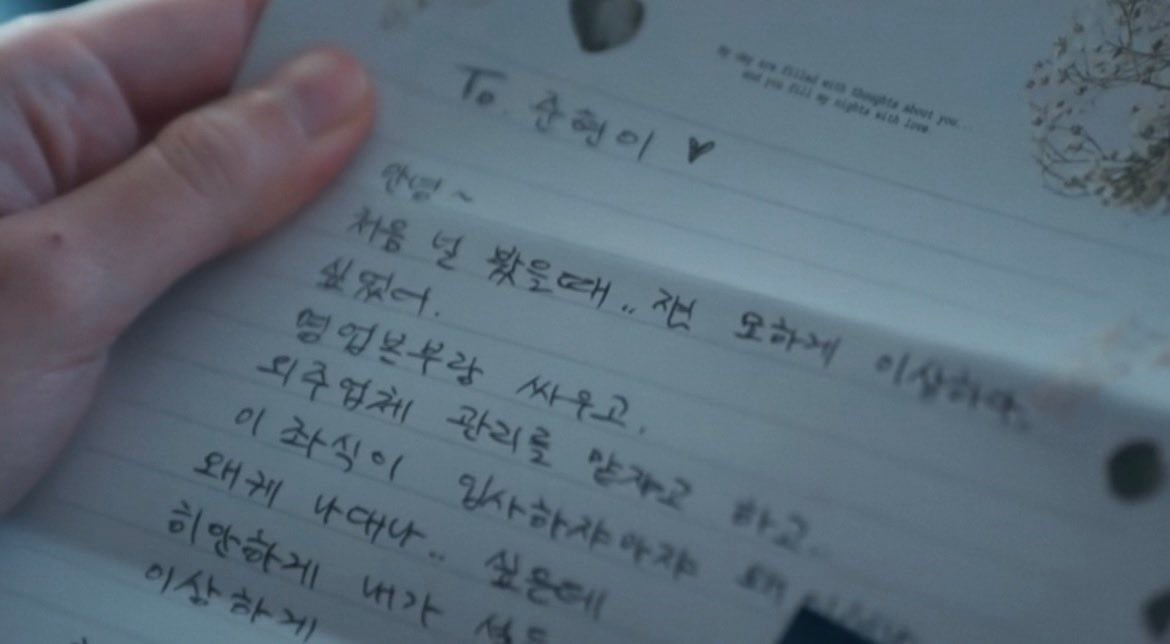 To. 준현이 ♥
My day are filled with thoughts about you...
and you fill my nights with love
안녕~
처음 널 봤을때.. 쟨 모하게 이상하다.
싶었어.
영업본부랑 싸우고.
외주업체 관리를 맡자고 하고..
이 좌식이 입사하쟈마쟈 왜
왜케 나대나.. 싶은데
희안하게 내가
이상하게